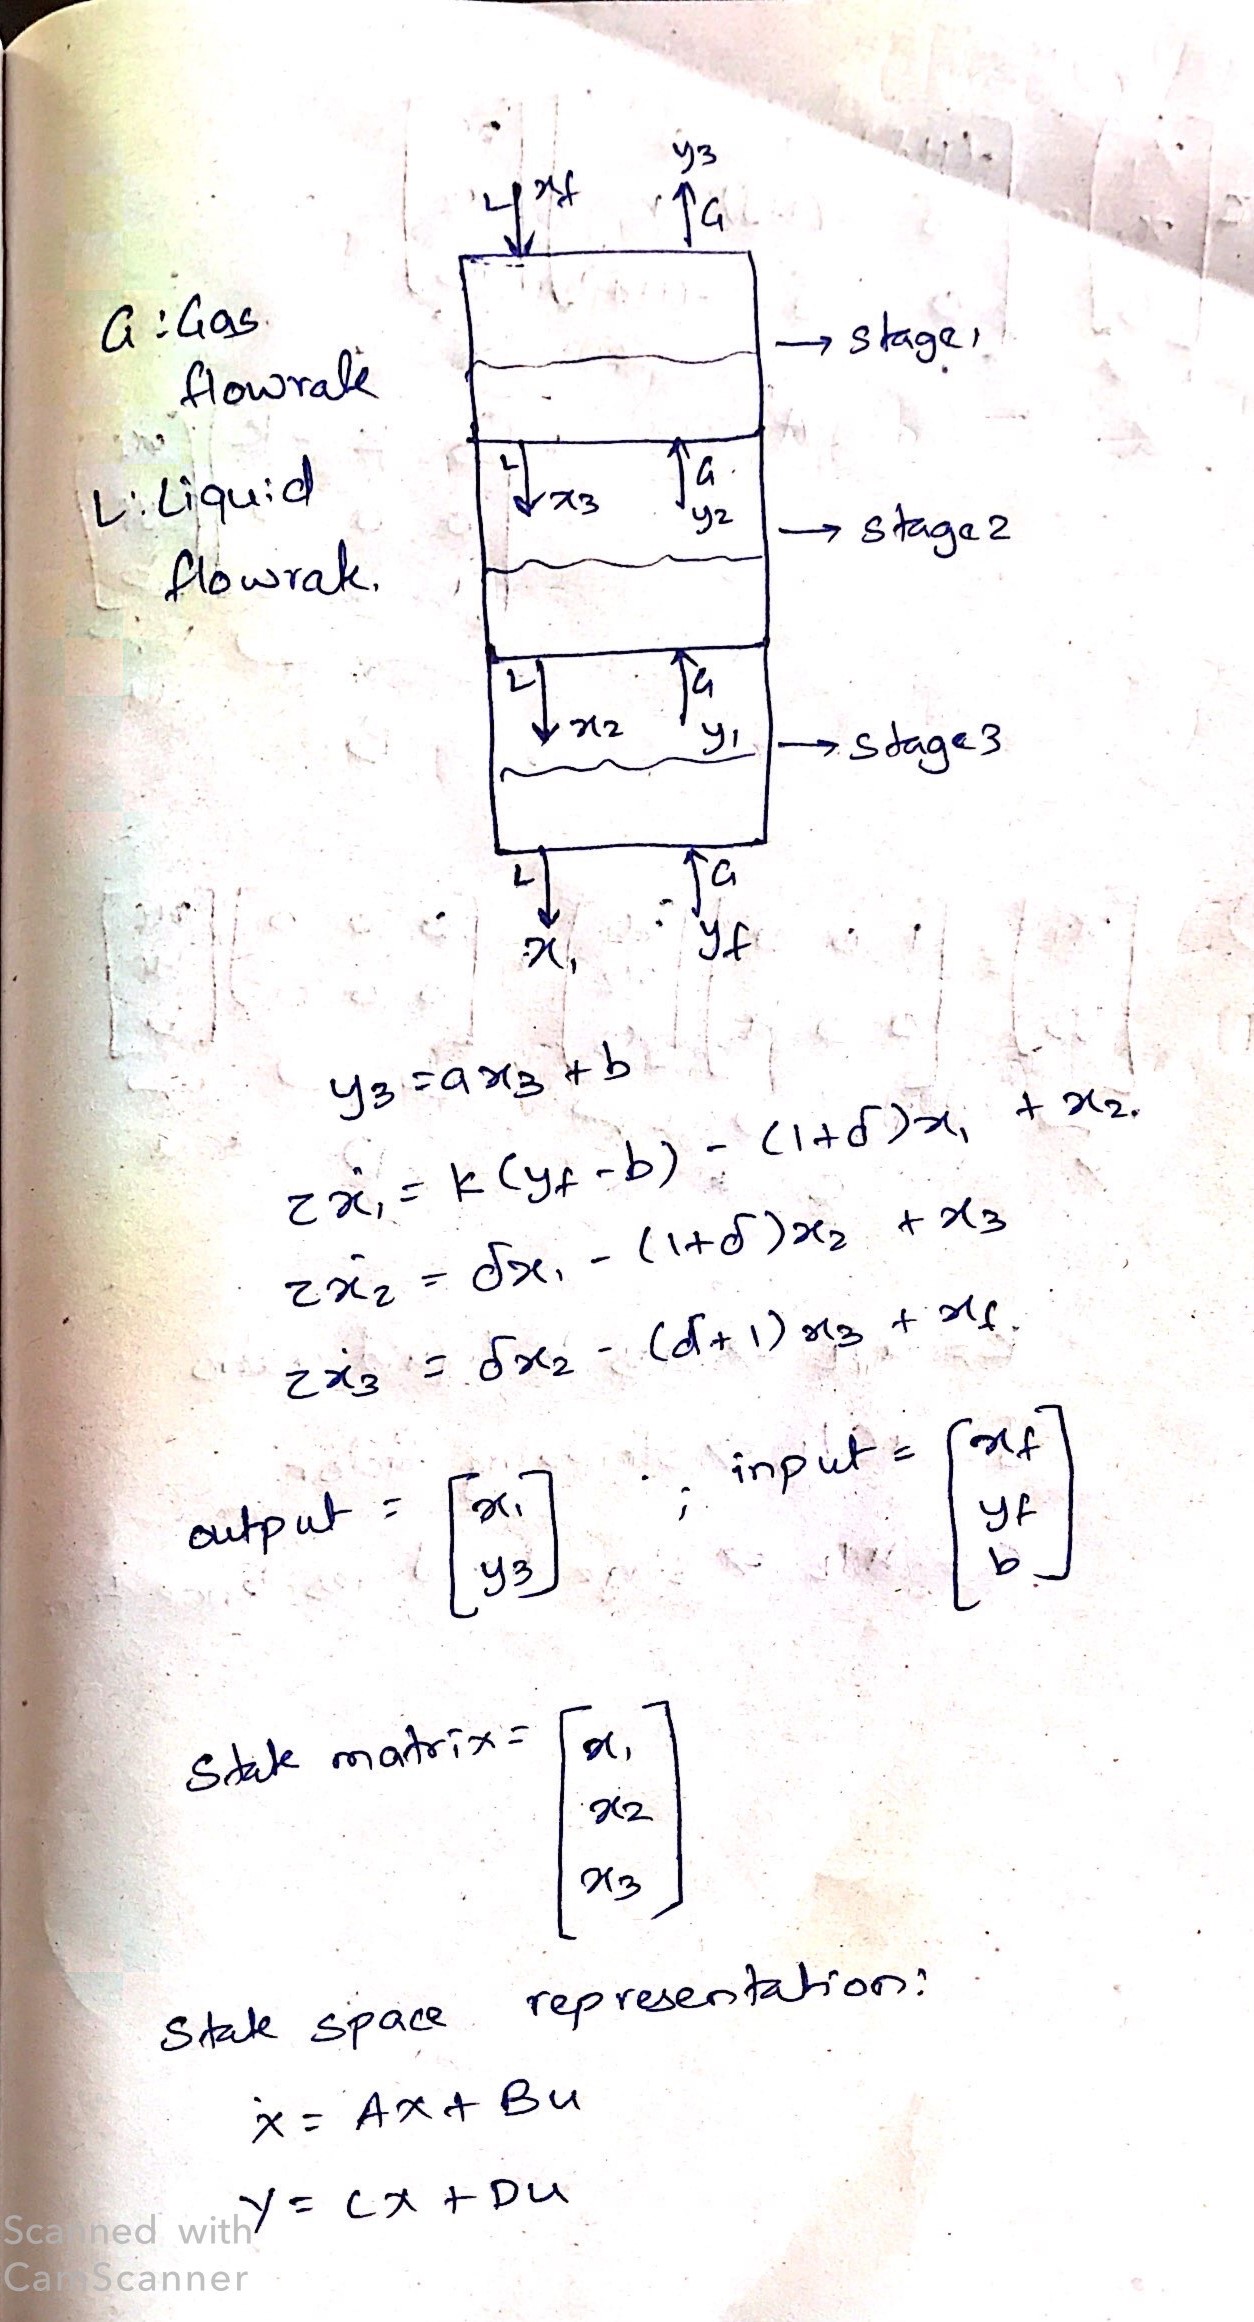 y3
L xf
G
G : Gas
flowrate
→ stage 1
L : Liquid
flowrate.
L x3
G
y2
→ stage 2
L x2
G
y1
→ stage 3
L
G
x1
yf
y3 = ax3 + b
τẋ1 = k(yf - b) - (1+δ)x1 + x2.
τẋ2 = δx1 - (1+δ)x2 + x3
τẋ3 = δx2 - (δ+1)x3 + xf.
output = [x1 y3] ; input = [xf yf b]
State matrix = [x1
x2
x3]
State space representation:
ẋ = Ax + Bu
y = Cx + Du
Scanned with
CamScanner